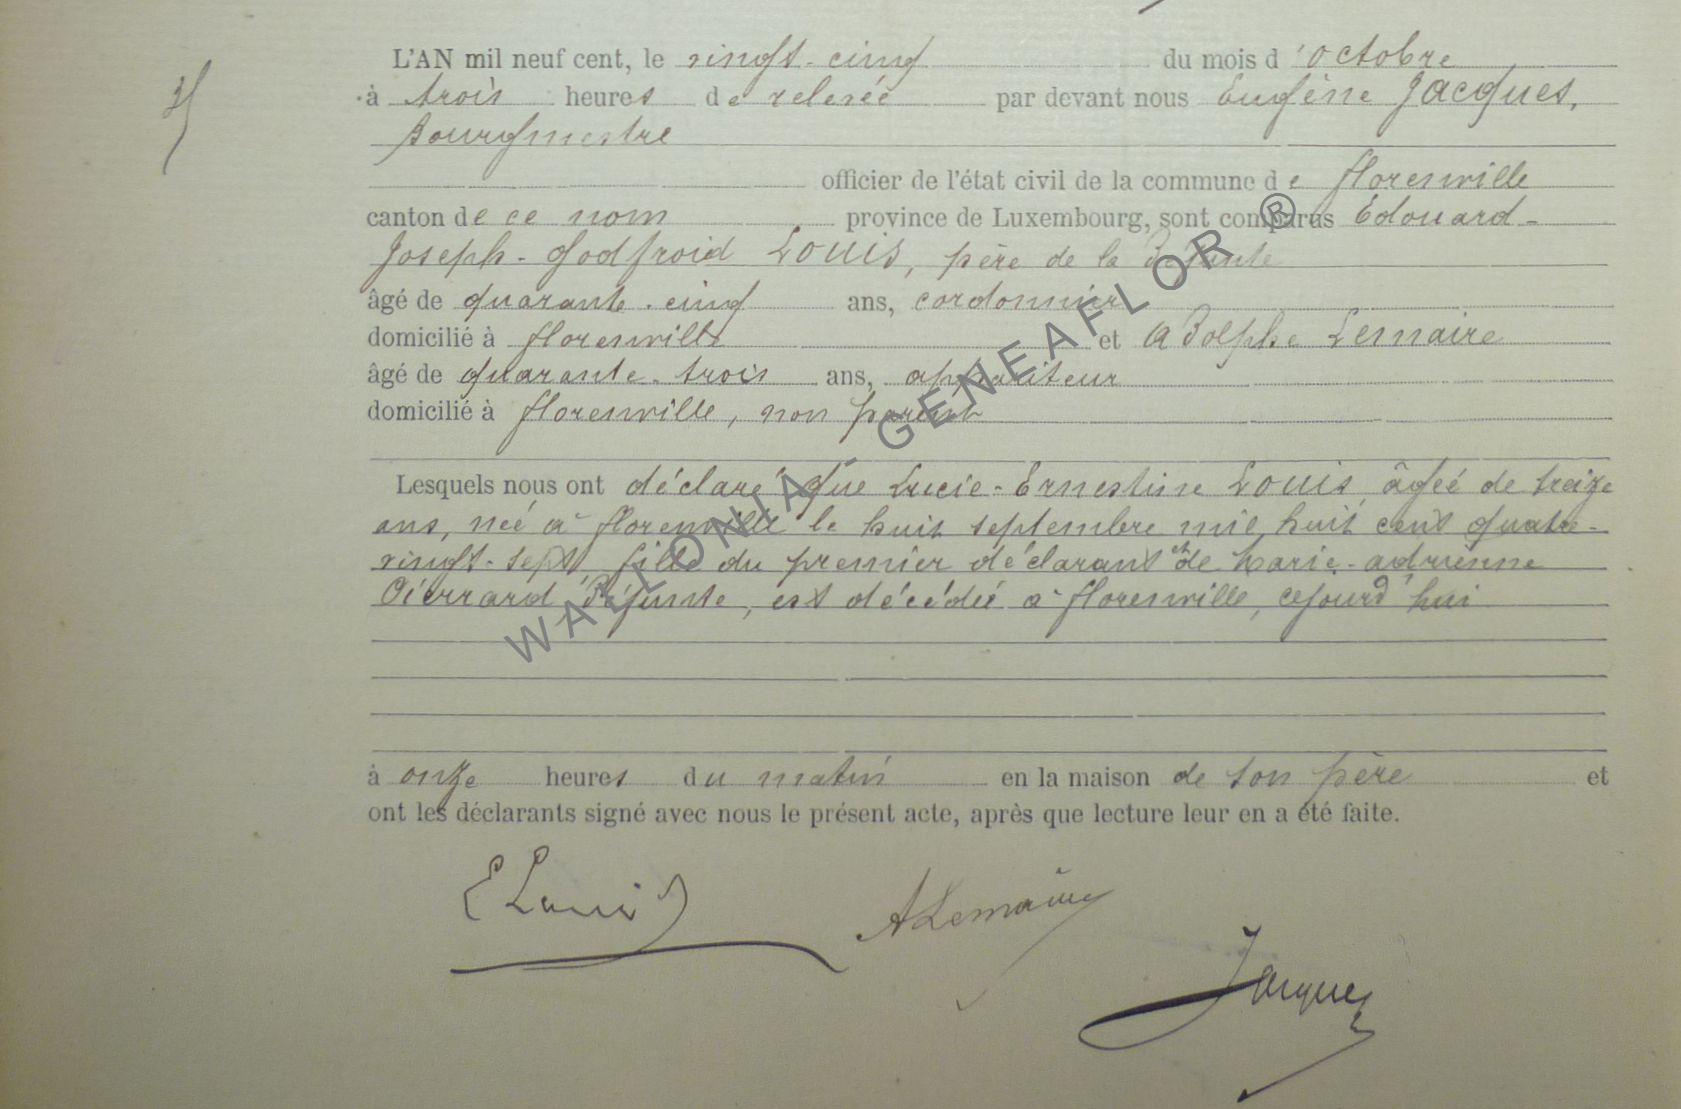 L'AN mil neuf cent, le vingt-cinq du mois d'octobre
à trois heures de relevée par devant nous Eugène Jacques,
Bourgmestre
officier de l'état civil de la commune de florenville
canton de ce nom province de Luxembourg, sont comparus Edouard-
Joseph-Godfroid LOUIS, père de la Défunte
âgé de quarante-cinq ans, cordonnier
domicilié à florenville et Adolphe Lemaire
âgé de quarante-trois ans, appariteur
domicilié à florenville, non parent
Lesquels nous ont déclaré que Lucie-Ernestine LOUIS, âgée de treize
ans, née à florenville le huit septembre mil huit cent quatre-
vingt-sept fille du premier déclarant et de Marie-adrienne
Piérrard Défunte, est décédée à florenville, cejourd'hui
à onze heures du matin en la maison de son père et
ont les déclarants signé avec nous le présent acte, après que lecture leur en a été faite.
E Louis
ALemaire
Jacques
WALLONIA - GENEAFLOR ®